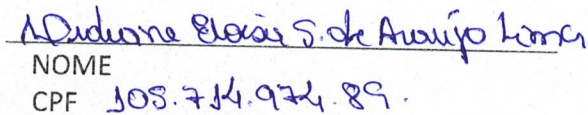 Eloisa S. de Araújo Lima
NOME
CPF 105.714.974.89.